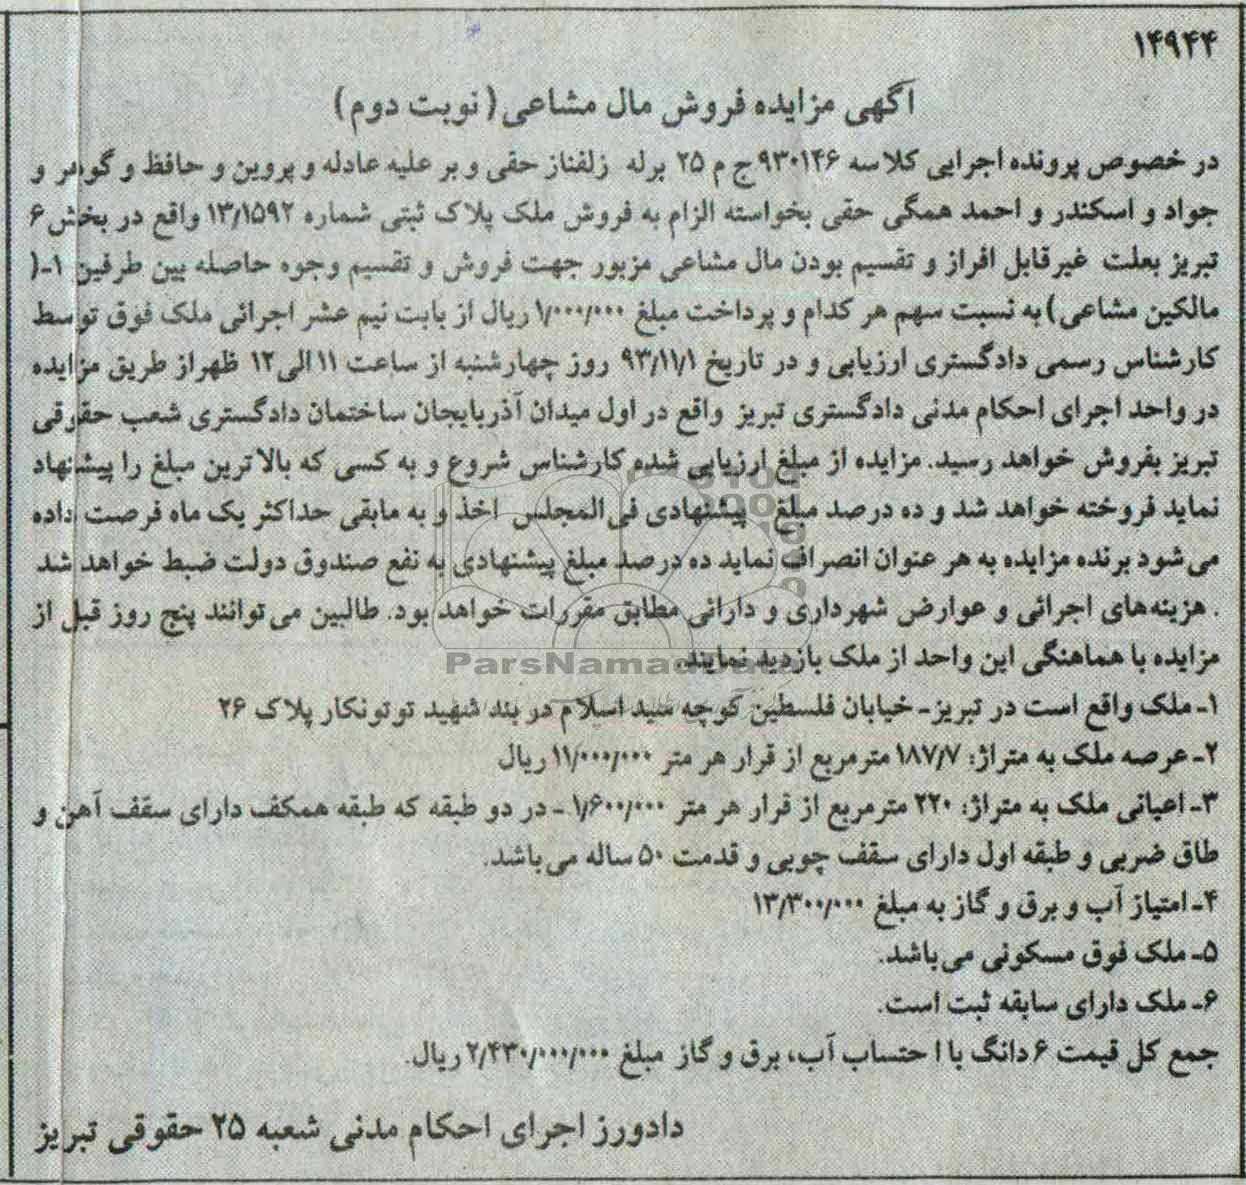 ۱۴۹۴۴
آگهی مزایده فروش مال مشاعی (نوبت دوم)
در خصوص پرونده اجرایی کلاسه ۹۳۰۱۴۶ ج م ۲۵ برله زلفناز حقی و بر علیه عادله و پروین و حافظ و گوهر و
جواد و اسکندر و احمد همگی حقی بخواسته الزام به فروش ملک پلاک ثبتی شماره ۱۳/۱۵۹۲ واقع در بخش ۶
تبریز بعلت غیرقابل افراز و تقسیم بودن مال مشاعی مزبور جهت فروش و تقسیم وجوه حاصله بین طرفین ۱-(
مالکین مشاعی) به نسبت سهم هر کدام و پرداخت مبلغ ۱/۰۰۰/۰۰۰ ریال از بابت نیم عشر اجرائی ملک فوق توسط
کارشناس رسمی دادگستری ارزیابی و در تاریخ ۹۳/۱۱/۱ روز چهارشنبه از ساعت ۱۱ الی ۱۲ ظهر از طریق مزایده
در واحد اجرای احکام مدنی دادگستری تبریز واقع در اول میدان آذربایجان ساختمان دادگستری شعب حقوقی
تبریز بفروش خواهد رسید. مزایده از مبلغ ارزیابی شده کارشناس شروع و به کسی که بالاترین مبلغ را پیشنهاد
نماید فروخته خواهد شد و ده درصد مبلغ پیشنهادی فی‌المجلس اخذ و به مابقی حداکثر یک ماه فرصت داده
می‌شود برنده مزایده به هر عنوان انصراف نماید ده درصد مبلغ پیشنهادی به نفع صندوق دولت ضبط خواهد شد
. هزینه‌های اجرائی و عوارض شهرداری و دارائی مطابق مقررات خواهد بود. طالبین می‌توانند پنج روز قبل از
مزایده با هماهنگی این واحد از ملک بازدید نمایند.
ParsNamadData
۱- ملک واقع است در تبریز- خیابان فلسطین کوچه سید اسلام در بند شهید توتونکار پلاک ۲۶
۲- عرصه ملک به متراژ: ۱۸۷/۷ مترمربع از قرار هر متر ۱۱/۰۰۰/۰۰۰ ریال
۳- اعیانی ملک به متراژ: ۲۲۰ مترمربع از قرار هر متر ۱/۶۰۰/۰۰۰- در دو طبقه که طبقه همکف دارای سقف آهن و
طاق ضربی و طبقه اول دارای سقف چوبی و قدمت ۵۰ ساله می‌باشد.
۴- امتیاز آب و برق و گاز به مبلغ ۱۳/۳۰۰/۰۰۰
۵- ملک فوق مسکونی می‌باشد.
۶- ملک دارای سابقه ثبت است.
جمع کل قیمت ۶ دانگ با احتساب آب، برق و گاز مبلغ ۲/۴۳۰/۰۰۰/۰۰۰ ریال.
دادورز اجرای احکام مدنی شعبه ۲۵ حقوقی تبریز